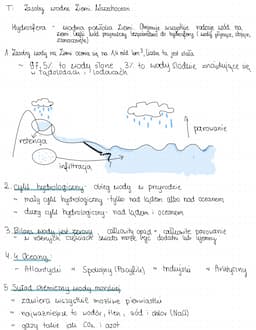 T: Zasoby wodne Ziemi. Wszechocean
Hydrosfera - wodna powłoka Ziemi. Obejmuje wszystkie rodzaje wód na
1. Zasoby wody na Ziemi ocenia się na 1,4 mld km³, liczba ta jest stała
~ 97,5% to wody słone, 3% to wody słodkie znajdujące się
w lądolodach i lodowcach
parowanie
retencja
infiltracja
2. Cykl hydrologiczny - obieg wody w przyrodzie
- mały cykl hydrologiczny - tylko nad lądem albo nad oceanem
- duży cykl hydrologiczny - nad lądem i oceanem
3. Bilans wody jest zerowy, całkowity opad = całkowite parowanie
w różnych częściach świata może być dodatni lub ujemny
4. 4 Oceany:
- Atlantycki - Spokojny (Pacyfik) - Indyjski - Arktyczny
5. Skład chemiczny wody morskiej
- zawiera wszystkie możliwe pierwiastki
- najważniejsze to wodór, tlen, sód i chlor (NaCl)
- gazy takie jak CO₂ i azot